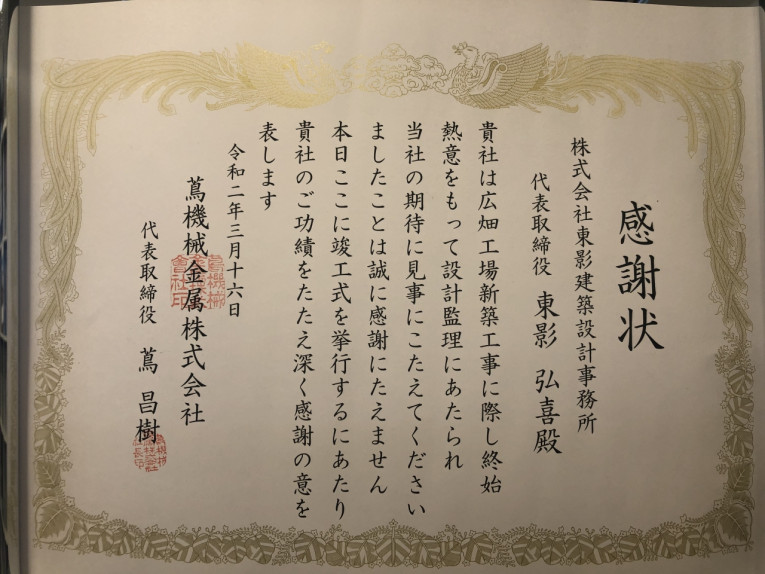 感謝状
株式会社東影建築設計事務所
代表取締役 東影 弘喜殿
貴社は広畑工場新築工事に際し終始
熱意をもって設計監理にあたられ
当社の期待に見事にこたえてください
ましたことは誠に感謝にたえません
本日ここに竣工式を挙行するにあたり
貴社のご功績をたたえ深く感謝の意を
表します
令和二年三月十六日
蔦機械金属株式会社
代表取締役 蔦 昌樹